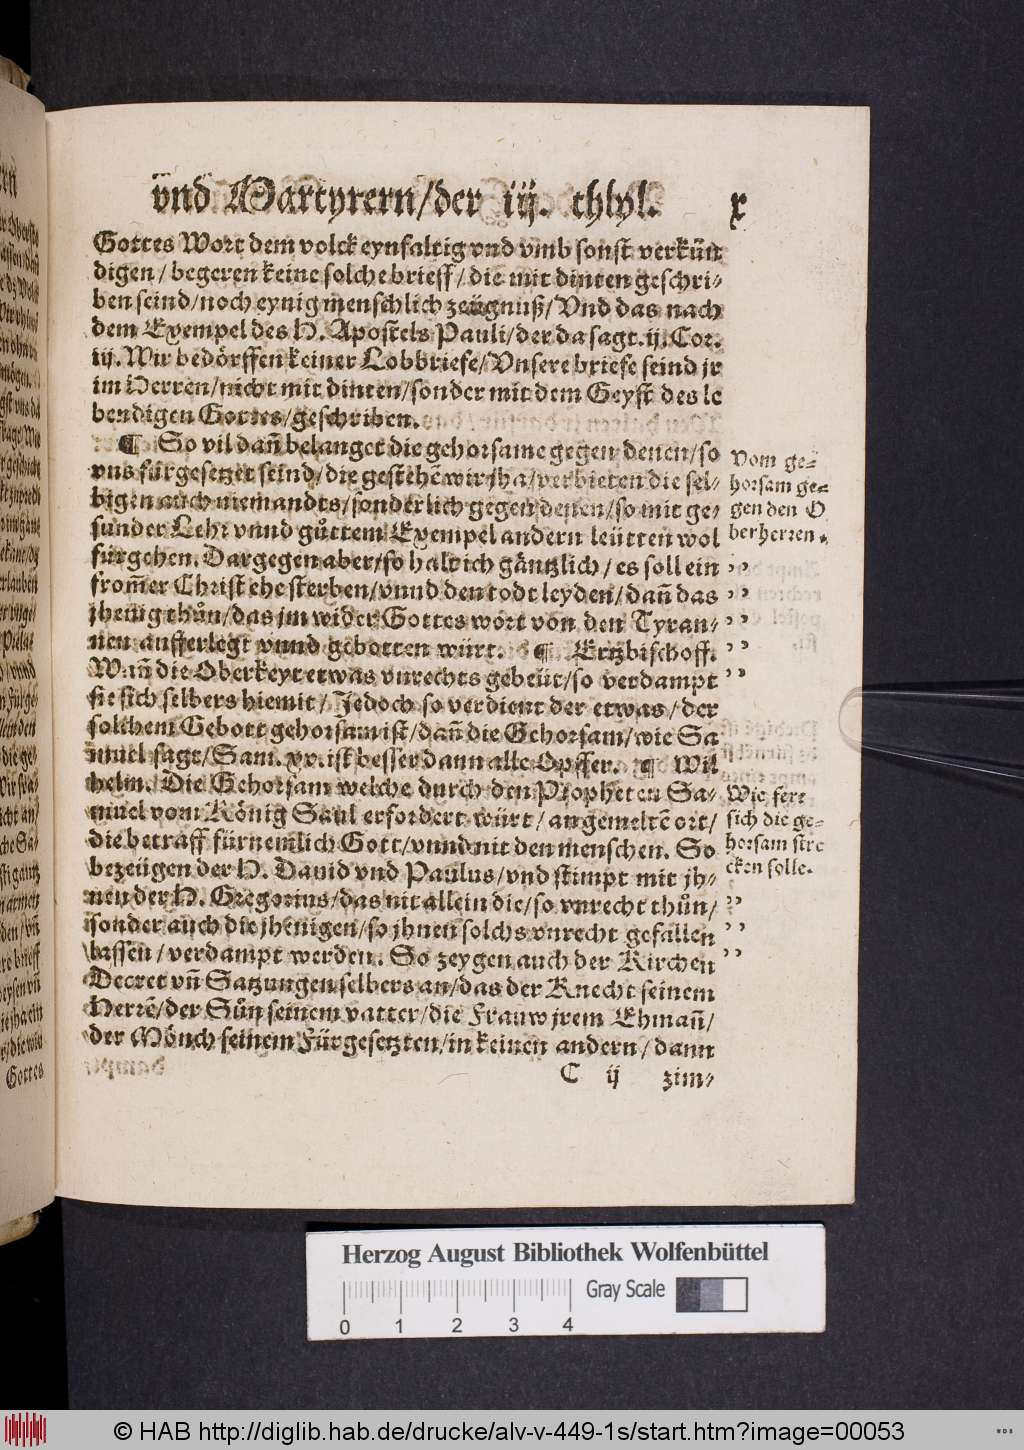 vnd Martyrern/der iij. thlyl. x
Gottes Wort dem volck eynfaltig vnd vmb sonst verkün
digen/begeren keine solche brieff/die mit dinten geschri-
ben seind/noch eynig menschlich zeügnuß/Vnd das nach
dem Exempel des H. Apostels Pauli/der da sagt.ij.Cor.
iij.Wir bedörffen keiner Lobbriefe/Vnsere briefe seind jr
im Herren/nicht mit dinten/sonder mit dem Geyst des le
bendigen Gottes/geschriben.
¶ So vil dañ belanget die gehorsame gegen denen/so
vns fürgesetzet seind/die gestehē wir/ha/verbieten die sel-
bigen auch niemandts/sonderlich gegen denen/so mit ge-
sunder Lehr vnnd gůttem Exempel andern leütten wol
fürgehen. Dargegen aber/so halt ich gäntzlich/es soll ein
from̃er Christ ehe sterben/vnnd den todt leyden/dañ das
jhenig thůn/das jm wider Gottes wort von den Tyran-
nen aufferlegt vnnd gebotten würt. ¶ Ertzbischoff.
Wañ die Oberkeyt etwas vnrechts gebeüt/so verdampt
sie sich selbers hiemit/Jedoch so verdient der etwas/der
solchem Gebott gehorsam ist/dañ die Gehorsam/wie Sa
muel sagt/Sam.xv.ist besser dann alle Opffer. ¶ Wil
helm. Die Gehorsam welche durch den Propheten Sa-
muel vom König Saul erfordert würt/angemeltē ort/
die betraff fürnemlich Gott/vnnd nit den menschen. So
bezeügen der H. Dauid vnd Paulus/vnd stimpt mit jh-
nen der H. Gregorius/das nit allein die/so vnrecht thůn/
sonder auch die jhenigen/so jhnen solchs vnrecht gefallen
lassen/verdampt werden. So zeygen auch der Kirchen
Decret vñ Satzungen selbers an/das der Knecht seinem
Herrē/der Sůn seinem vatter/die Frauw jrem Ehmañ/
der Mönch seinem Fürgesetzten/in keinen andern/dann
C ij zim-
Vom ge-
horsam ge-
gen den O
berherren.
Wie fert
sich die ge-
horsam stre
cken solle.
Herzog August Bibliothek Wolfenbüttel
Gray Scale
0 1 2 3 4
© HAB http://diglib.hab.de/drucke/alv-v-449-1s/start.htm?image=00053